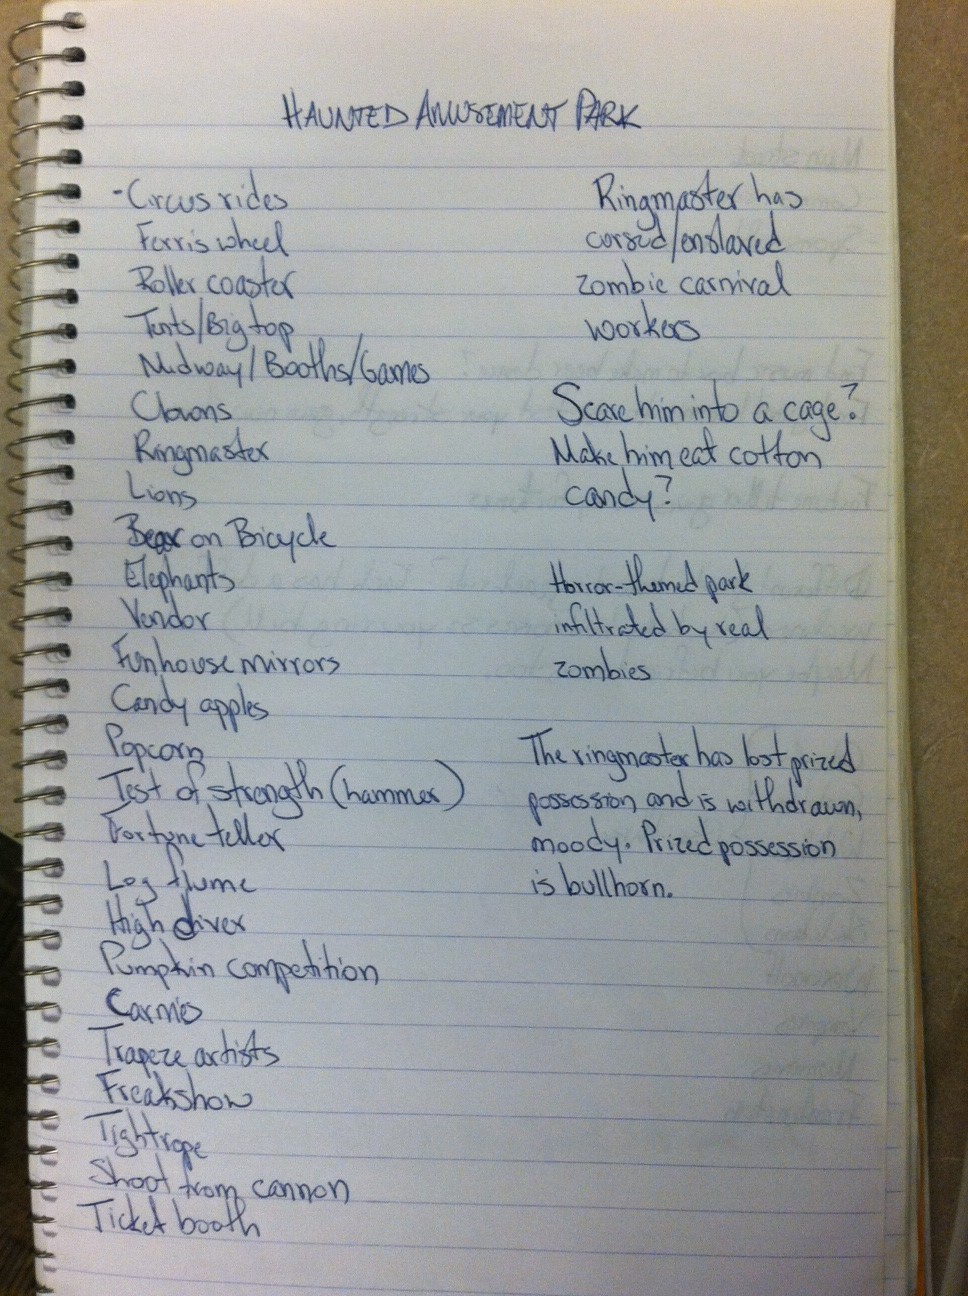 HAUNTED AMUSEMENT PARK
-Circus rides
Ferris wheel
Roller coaster
Tents/Big top
Midway/Booths/Games
Clowns
Ringmaster
Lions
Bear on Bicycle
Elephants
Vendor
Funhouse mirrors
Candy apples
Popcorn
Test of strength (hammer)
Fortune teller
Log flume
High diver
Pumpkin competition
Carnies
Trapeze artists
Freakshow
Tightrope
Shoot from cannon
Ticket booth
Ringmaster has
cursed/enslaved
zombie carnival
workers
Scare him into a cage?
Make him eat cotton
candy?
Horror-themed park
infiltrated by real
zombies
The ringmaster has lost prized
possession and is withdrawn,
moody. Prized possession
is bullhorn.